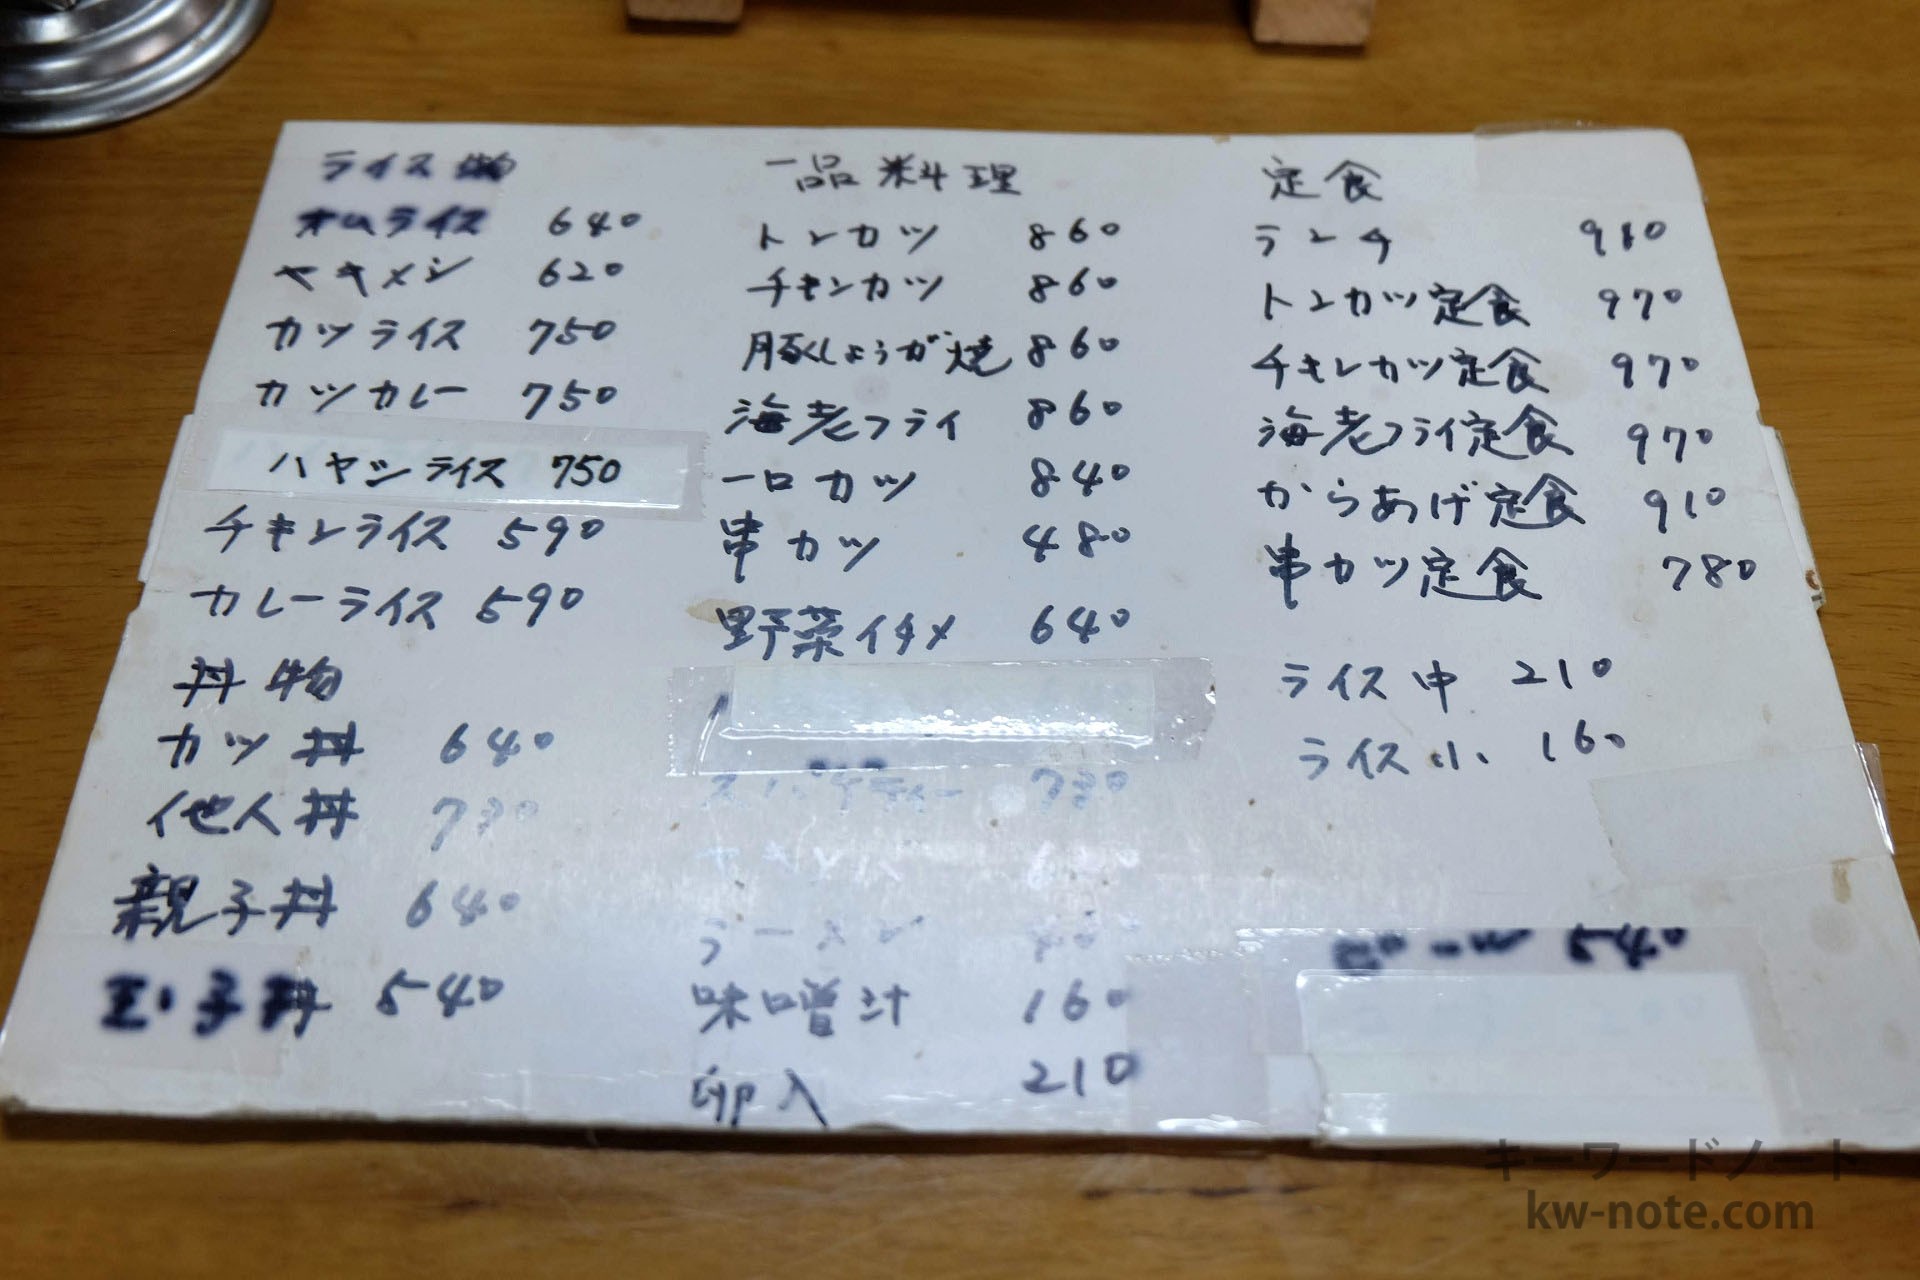 ライス物
オムライス 640
ヤキメシ 620
カツライス 750
カツカレー 750
ハヤシライス 750
チキンライス 590
カレーライス 590
丼物
カツ丼 640
他人丼 730
親子丼 640
玉子丼 540
一品料理
トンカツ 860
チキンカツ 860
豚しょうが焼 860
海老フライ 860
一口カツ 840
串カツ 480
野菜イタメ 640
スパゲティー 730
ラーメン
味噌汁 160
卵入 210
定食
ランチ 910
トンカツ定食 970
チキンカツ定食 970
海老フライ定食 970
からあげ定食 910
串カツ定食 780
ライス中 210
ライス小 160
ビール 540
キーワードノート
kw-note.com